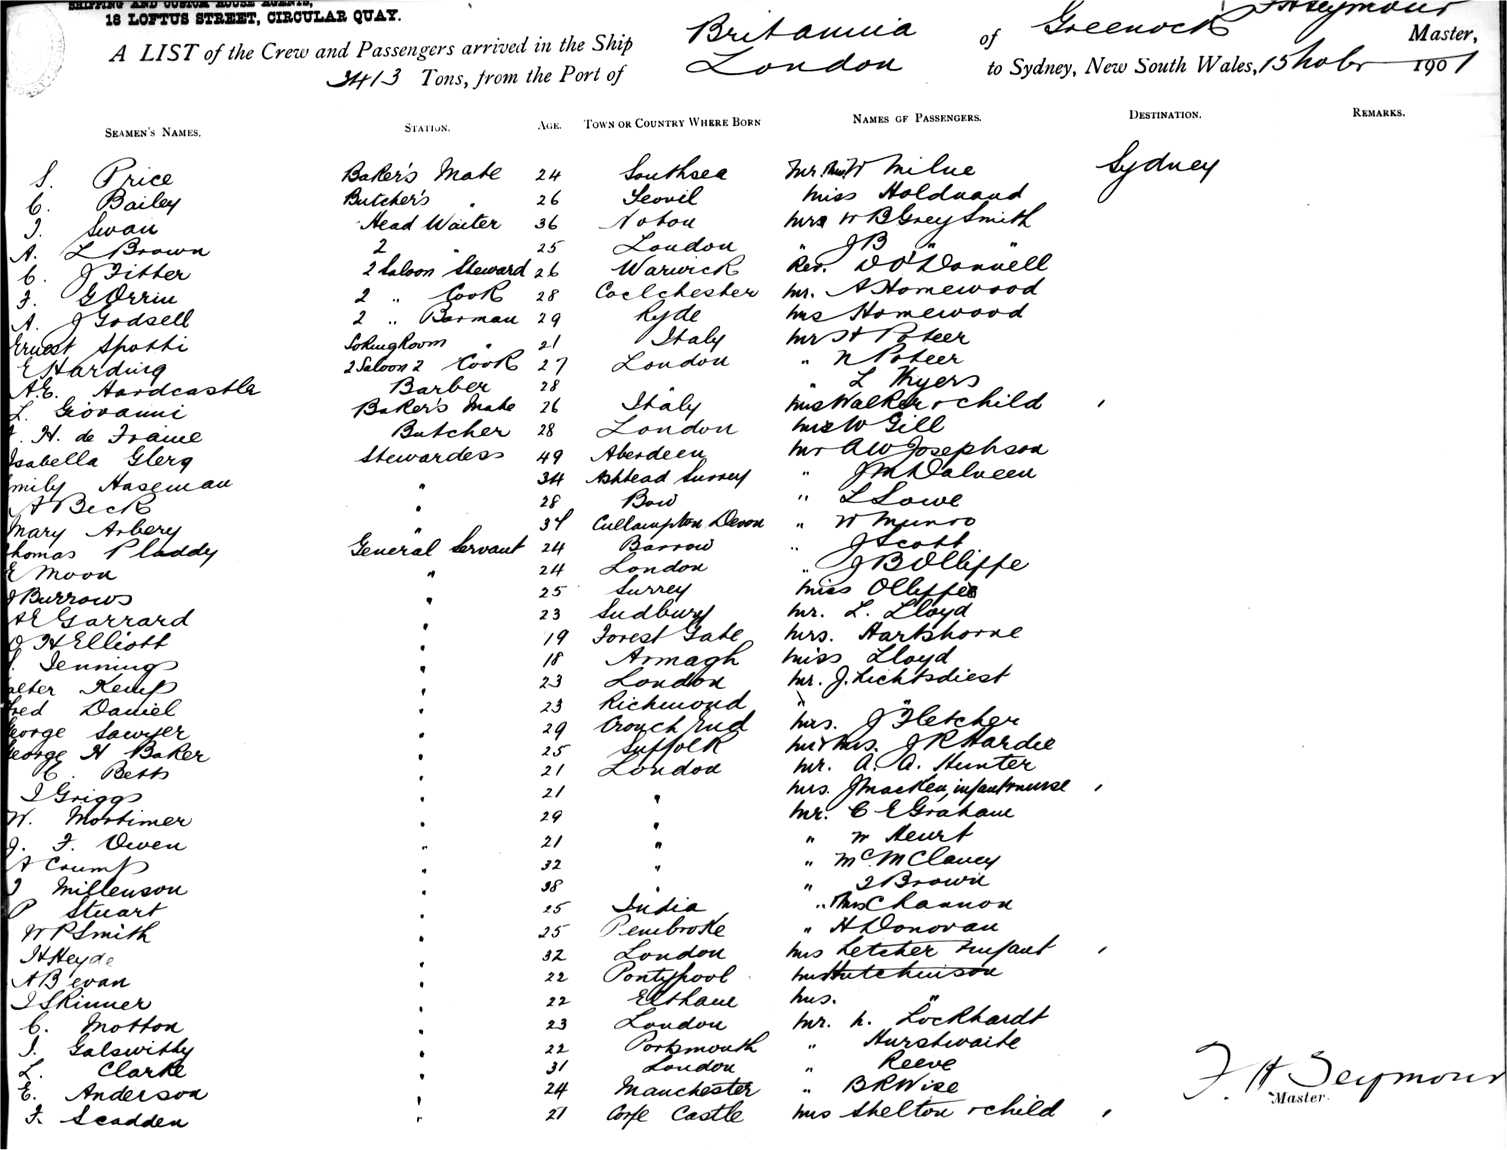 SHIPPING AND CUSTOM HOUSE AGENTS,
18 LOFTUS STREET, CIRCULAR QUAY.
A LIST of the Crew and Passengers arrived in the Ship Britannia of Greenock F H Seymour Master,
3413 Tons, from the Port of London to Sydney, New South Wales, 15 1901
SEAMEN'S NAMES. STATION. AGE. TOWN OR COUNTRY WHERE BORN NAMES OF PASSENGERS. DESTINATION. REMARKS.
S. Price Baker's Mate 24 Southsea Mr. Mrs W Milne Sydney
C. Bailey Butcher's " 26 Yeovil Miss Holdnand
J. Swan Head Waiter 36 Noton Mrs W B Grey Smith
A. L Brown 2 " 25 London " J B " "
C. J Fitter 2 Saloon Steward 26 Warwick Rev. D O'Donnell
F. G Orrin 2 " Cook 28 Coelchester Mr. A Homewood
A. J Godsell 2 " Barman 29 Ryde Mrs Homewood
Ernest Spotti Room " 21 Italy Mr H Poteer
E Harding 2 Saloon 2 Cook 27 London " N Poteer
A.E. Hardcastle Barber 28 " " L Thyers
L. Giovanni Baker's Mate 26 Italy Mrs Walker & child
H. de Fraine Butcher 28 London Mrs W Gill
Isabella Glerg Stewardess 49 Aberdeen Mr A W Josephson
Emily Haseman " 34 Ashtead Surrey " J M Dalveen
A Beck " 28 Bow " L Lowe
Mary Arbery " 37 Cullampton Devon " W Munro
Thomas Pladdy General Servant 24 Barrow " J Scott
E Moon " 24 London " J B Olliffe
J Burrows " 25 Surrey Miss Olliffe
A E Garrard " 23 Sudbury Mr. L. Lloyd
O H Elliott " 19 Forest Gate Mrs. Hartshorne
Jennings " 18 Armagh Miss Lloyd
Walter Kemp " 23 London Mr. J. Lichtsdiest
Fred Daniel " 23 Richmond " "
George Sawyer " 29 Crouch End Mrs. J Fletcher
George H Baker " 25 Suffolk Mr & Mrs. J R Hardie
C. Betts " 21 London Mr. A. A. Hunter
J Griggs " 21 " Mrs. J Macken, infant & nurse
W. Mortimer " 29 " Mr. C E Graham
J. F. Owen " 21 " " W Heurt
A Crump " 32 " " McMClancy
J Millenson " 38 " " J Brown
P Stuart " 25 India " & Mrs Channon
W P Smith " 25 Pembroke " H Donovan
H Heyde " 32 London Mrs Letcher & infant
A Bevan " 22 Pontypool Mrs Hutchinson
J Skinner " 22 Eltham Mrs. "
C. Motton " 23 London Mr. H. Lockhardt
J. Galswithy " 22 Portsmouth " Hurstwaite
L. Clarke " 31 London " Reeve
E. Anderson " 24 Manchester " B R Wise
F. Scadden " 21 Corfe Castle Mrs Shelton & child
F. H Seymour
Master.